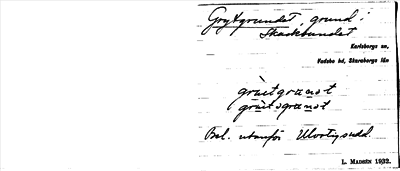 Grytgrundet, grund i
Skackbundet
Karlsborgs sn,
Vadsbo hd, Skaraborgs län
grùetgranst
grùetsgranst
Bel. utanför Ulvortsudd.
L. MADSÉN 1932.